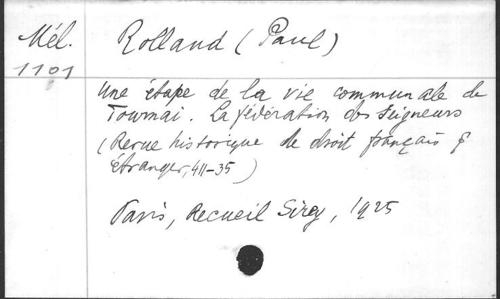 Mél.
1101
Rolland (Paul)
Une étape de la vie communale de
Tournai. La fédération des Seigneurs
(Revue historique de droit français &
étranger, 411-35)
Paris, Recueil Sirey, 1925